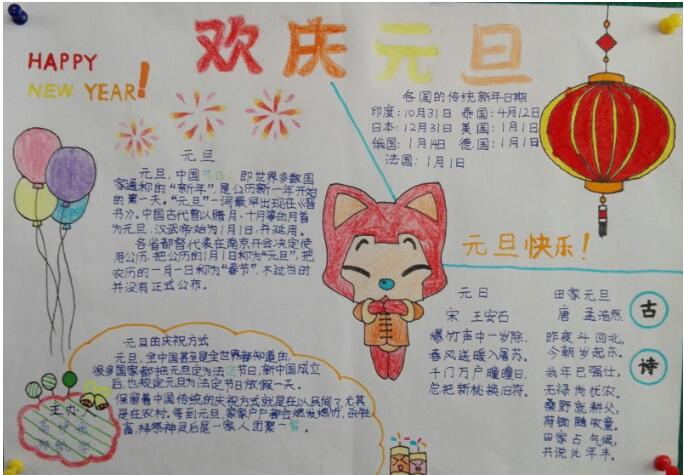 欢庆元旦
HAPPY
NEW YEAR!
各国的传统新年日期
印度:10月31日 泰国:4月12日
日本:12月31日 美国:1月1日
俄国:1月4日 德国:1月1日
法国:1月1日
元旦
元旦,中国节日,即世界多数国
家通称的“新年”,是公历新一年开始
的第一天。“元旦”一词最早出现在《晋
书》。中国古代曾以腊月、十月等的月首
为元旦,汉武帝始为1月1日,并延用。
各省都督代表在南京开会决定使
用公历,把公历的1月1日称为“元旦”,把
农历的一月一日称为“春节”,不过当时
并没有正式公布。
元旦快乐!
古诗
元日
宋 王安石
爆竹声中一岁除,
春风送暖入屠苏。
千门万户曈曈日,
总把新桃换旧符。
田家元旦
唐 孟浩然
昨夜斗回北,
今朝岁起东。
我年已强仕,
无禄尚忧农。
桑野就耕父,
荷锄随牧童。
田家占气候,
共说此年丰。
元旦的庆祝方式
元旦,全中国甚至是全世界都知道的,
很多国家都把元旦定为法定节日,新中国成立
后,也规定元旦为法定节日放假一天。
保留着中国传统的庆祝方式就是在以民间了,尤其
是在农村。等到元旦,家家户户都会燃发燃竹,杀牲
畜,拜祭神灵后是一家人团聚一
主办: